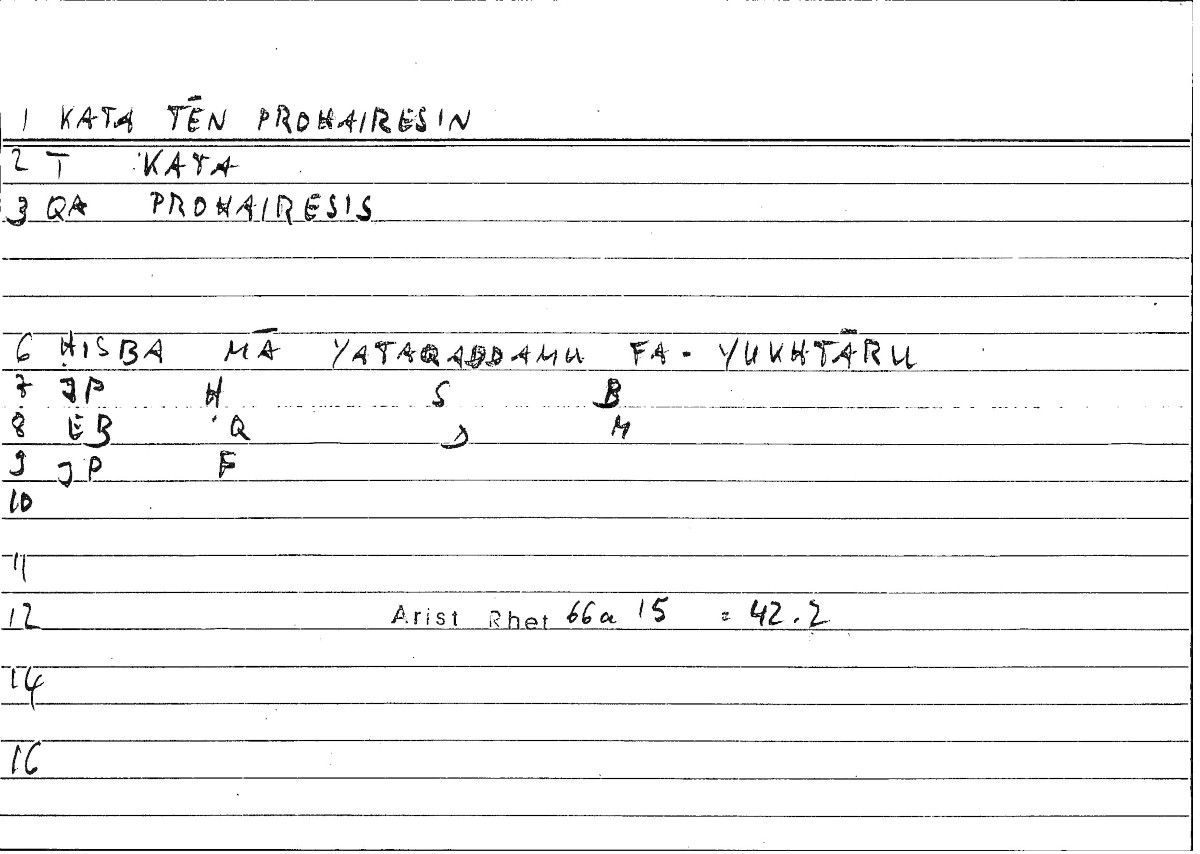 1 KATA TĒN PROHAIRESIN
2 T KATA
3 QA PROHAIRESIS
6 ḤISBA MĀ YATAQADDAMU FA-YUKHTĀRU
7 JP H S B
8 EB Q D M
9 JP F
10
11
12 Arist Rhet 66a 15 = 42.2
14
16